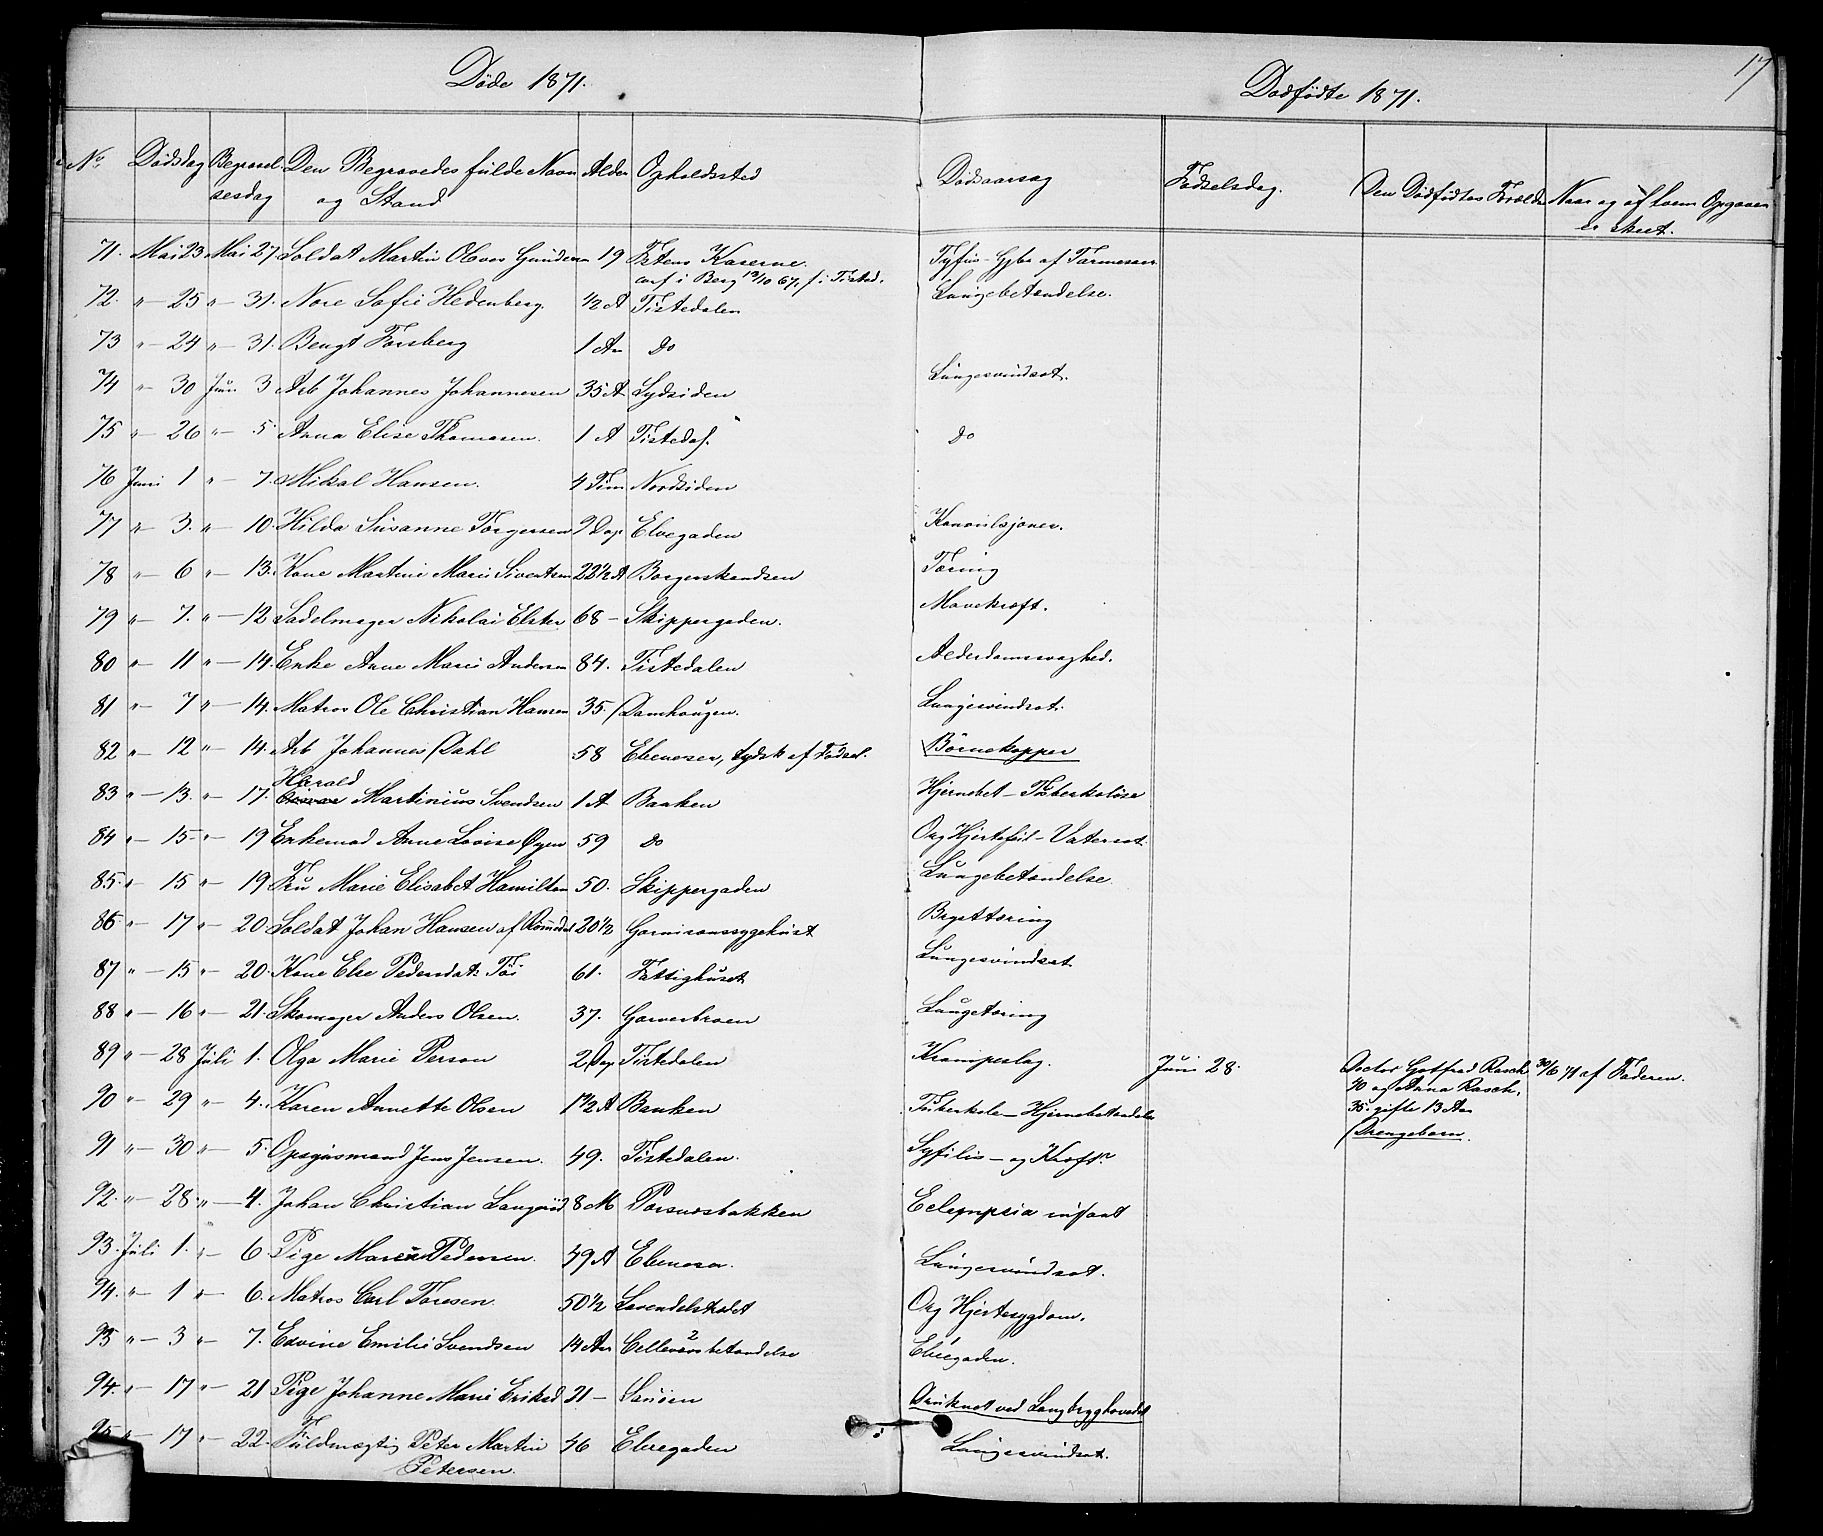 17
Døde 1871.
Dødfødte 1871.
No. Dødsdag Begravel- Den Begravedes fulde Navn Alder Opholdssted Dødsaarsag Fødselsdag. Den Dødfødtes Forældre Naar og af hvem Opgaven
sesdag og Stand er skeet.
71. Mai 23 Mai 27 Soldat Martin Olves Gundersen 19 Fstens Kaserne. Tyfus - af Tarmesaar
conf i Berg 13/10 67, f. i Tistad.
72. " 25 " 31. Nore Sofie Hedenberg. 1/2 A Tistedalen Lungebetændelse.
73 " 24 " 31. Bengt Forsberg 1 Aar Do
74 " 30 Juni 3 Arb Johannes Johannesen 35 A Sydsiden Lungesvindsot.
75 " 26 " 5. Anna Elise Thomasen. 1 A Tistedal. Do
76 Juni 1 " 7. Mikal Hansen. 4 Tim Nordsiden
77 " 3. " 10. Hilda Susanne Torgersen 9 Dag Elvegaden Konvulsjoner.
78 " 6 " 13. Kone Martine Marie Sivertsen 22 1/2 A Borgerskandsen Tæring
79 " 7. " 12 Sadelmager Nikolai Elster 68 - Skippergaden. Mavekræft.
80 " 11 " 14. Enke Anne Marie Andersen 84. Tistedalen Alderdomssvaghed.
81 " 7 " 14. Matros Ole Christian Hansen 35. Damhougen. Lungesvindsot.
82 " 12 " 14. Arb Johannes Dahl 58 Ebeneser, tydsk af Fødsel. Børnekopper
Harald
83 " 13. " 17. Martinius Svendsen 1 A Banken Hjernebet - Tuberkuløse
84 " 15 " 19 Enkemad Anne Lovise Øyen 59 Do Org Hjertefeil - Vatersot.
85. " 15 " 19 Fru Marie Elisabet Hamilton 50. Skippergaden Lungebetændelse.
86 " 17 " 20. Soldat Johan Hansen af Romedal 20 1/2 Garnisonssygehuset Brysttæring
87 " 15 " 20. Kone Else Pedersdat: Toi 61. Fattighuset Lungesvindsot
88 " 16 " 21. Skomager Anders Olsen. 37. Garverbroen Lungetæring
89 " 28 Juli 1. Olga Marie Person 2 Dag Tistedalen Krampeslag. Juni 28. Doctor Gotfred Rasch 30/6 71 af Faderen.
90 " 29 " 4. Karen Annette Olsen 1 1/2 A Banken Tuberkulø - Hjernebetændelse 40 og Anna Rasch,
35. gifte 13 Aar
Drengebarn.
91 " 30 " 5. Opsynsmand Jens Jensen. 49. Tistedalen. Syfilis - og Kræft.
92. " 28. " 4. Johan Christian Langerød 8 M Porsnesbakken Eclampsia infant
93. Juli 1. " 6. Pige Maren Pedersen. 49 A Ebeneser. Lungesvindsot.
94. " 1 " 6. Matros Carl Toresen. 50 1/2 Lavendelstrædet Org Hjertesygdom.
95 " 3 " 7. Edvine Emilie Svendsen 14 Aar Cellevævsbetændelse 2 Elvegaden. 1
94. " 17 " 21 Pige Johanne Marie Eriksd 21 - Sauøen Druknet ved Langbrygghovedet
95 " 17 " 22. Fuldmægtig Peter Martin 46 Elvegaden Lungesvindsot.
Petersen.